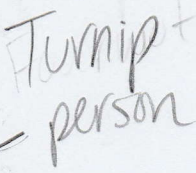 Turnip
- person